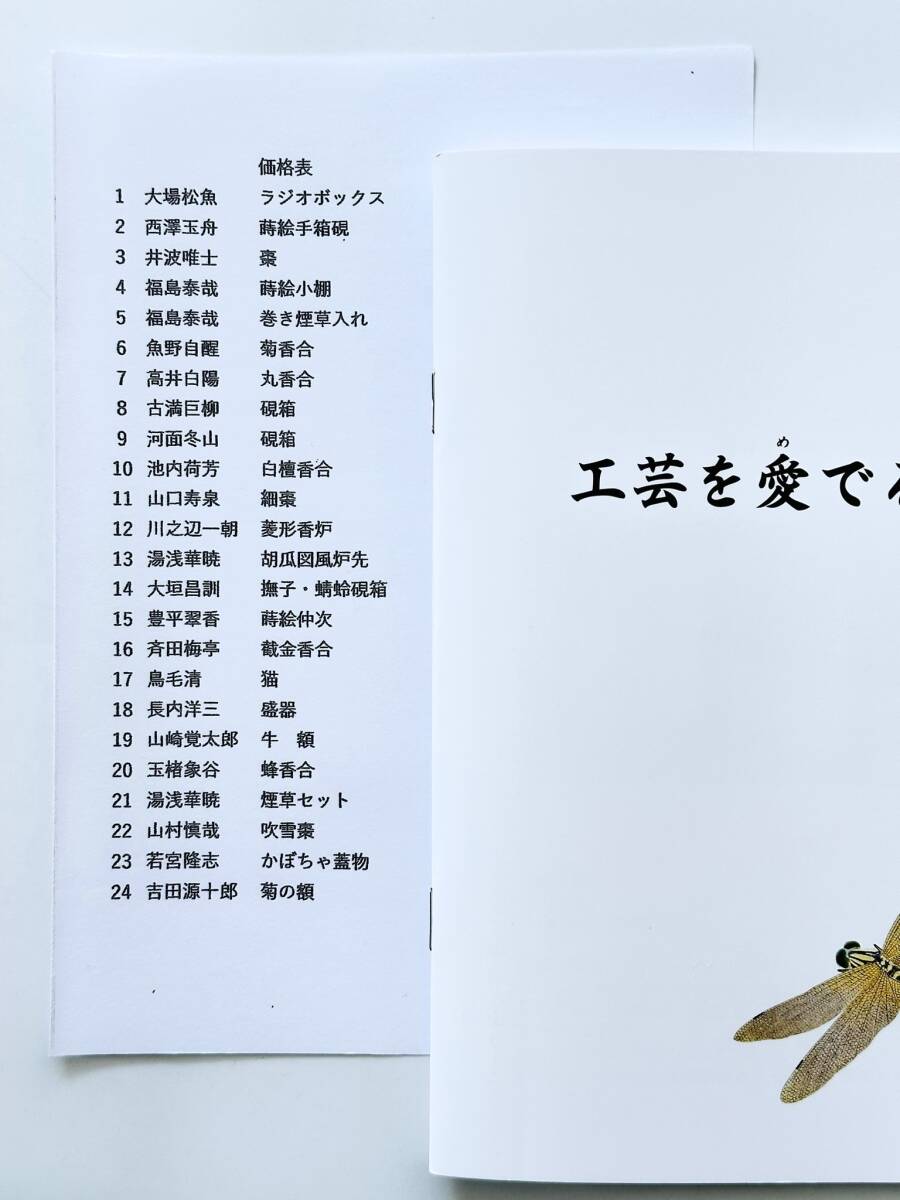 価格表
1 大場松魚 ラジオボックス
2 西澤玉舟 蒔絵手箱硯
3 井波唯士 棗
4 福島泰哉 蒔絵小棚
5 福島泰哉 巻き煙草入れ
6 魚野自醒 菊香合
7 高井白陽 丸香合
8 古満巨柳 硯箱
9 河面冬山 硯箱
10 池内荷芳 白檀香合
11 山口寿泉 細棗
12 川之辺一朝 菱形香炉
13 湯浅華暁 胡瓜図風炉先
14 大垣昌訓 撫子・蜻蛉硯箱
15 豊平翠香 蒔絵仲次
16 斉田梅亭 截金香合
17 鳥毛清 猫
18 長内洋三 盛器
19 山崎覚太郎 牛 額
20 玉楮象谷 蜂香合
21 湯浅華暁 煙草セット
22 山村慎哉 吹雪棗
23 若宮隆志 かぼちゃ蓋物
24 吉田源十郎 菊の額
め
工芸を愛で